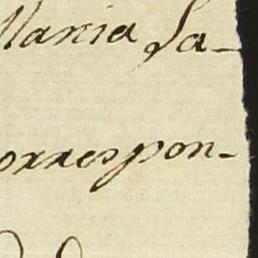 Maria Sa-
orrespon-